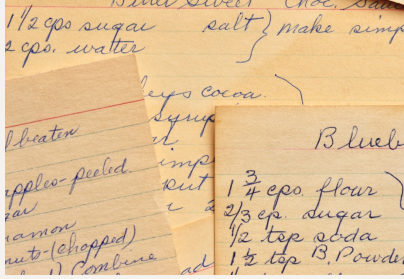 Bitter Sweet Choc. Sau
1 1/2 cps sugar salt } make simp
2 cps. watter
eys cocoa.
syrup
imp
put
ad
l beaten
apples-peeled.
gar
namon
nuts-(chopped)
Combine
Blueb
1 3/4 cps. flour
2/3 cp. sugar
1/2 tsp soda
1 1/2 tsp B. Powde